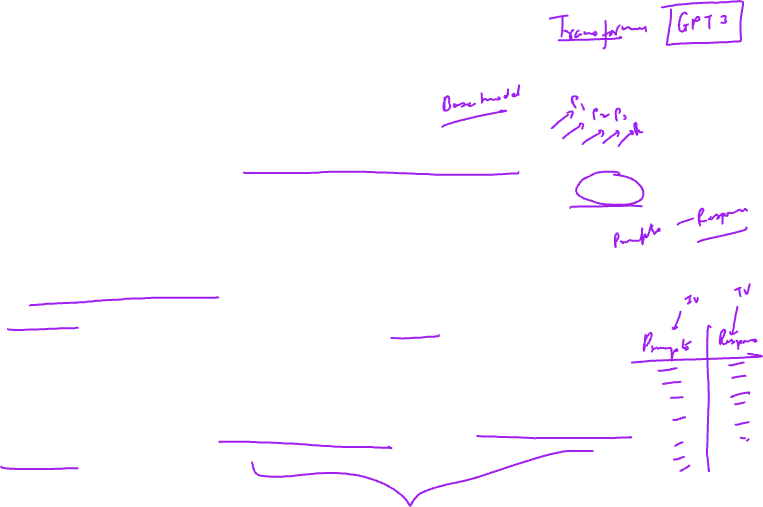 Transformers GPT 3
Base model
P1 P2 P3
Prompts - Response
IV TV
Prompts Response